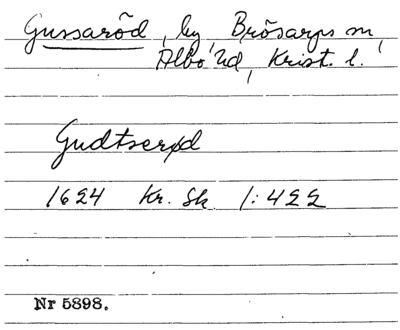 Gussaröd, by, Brösarps sn,
Albo hd, Krist. l.
Gudtserød
1624 Kr. Sk 1:422
Nr 5898.